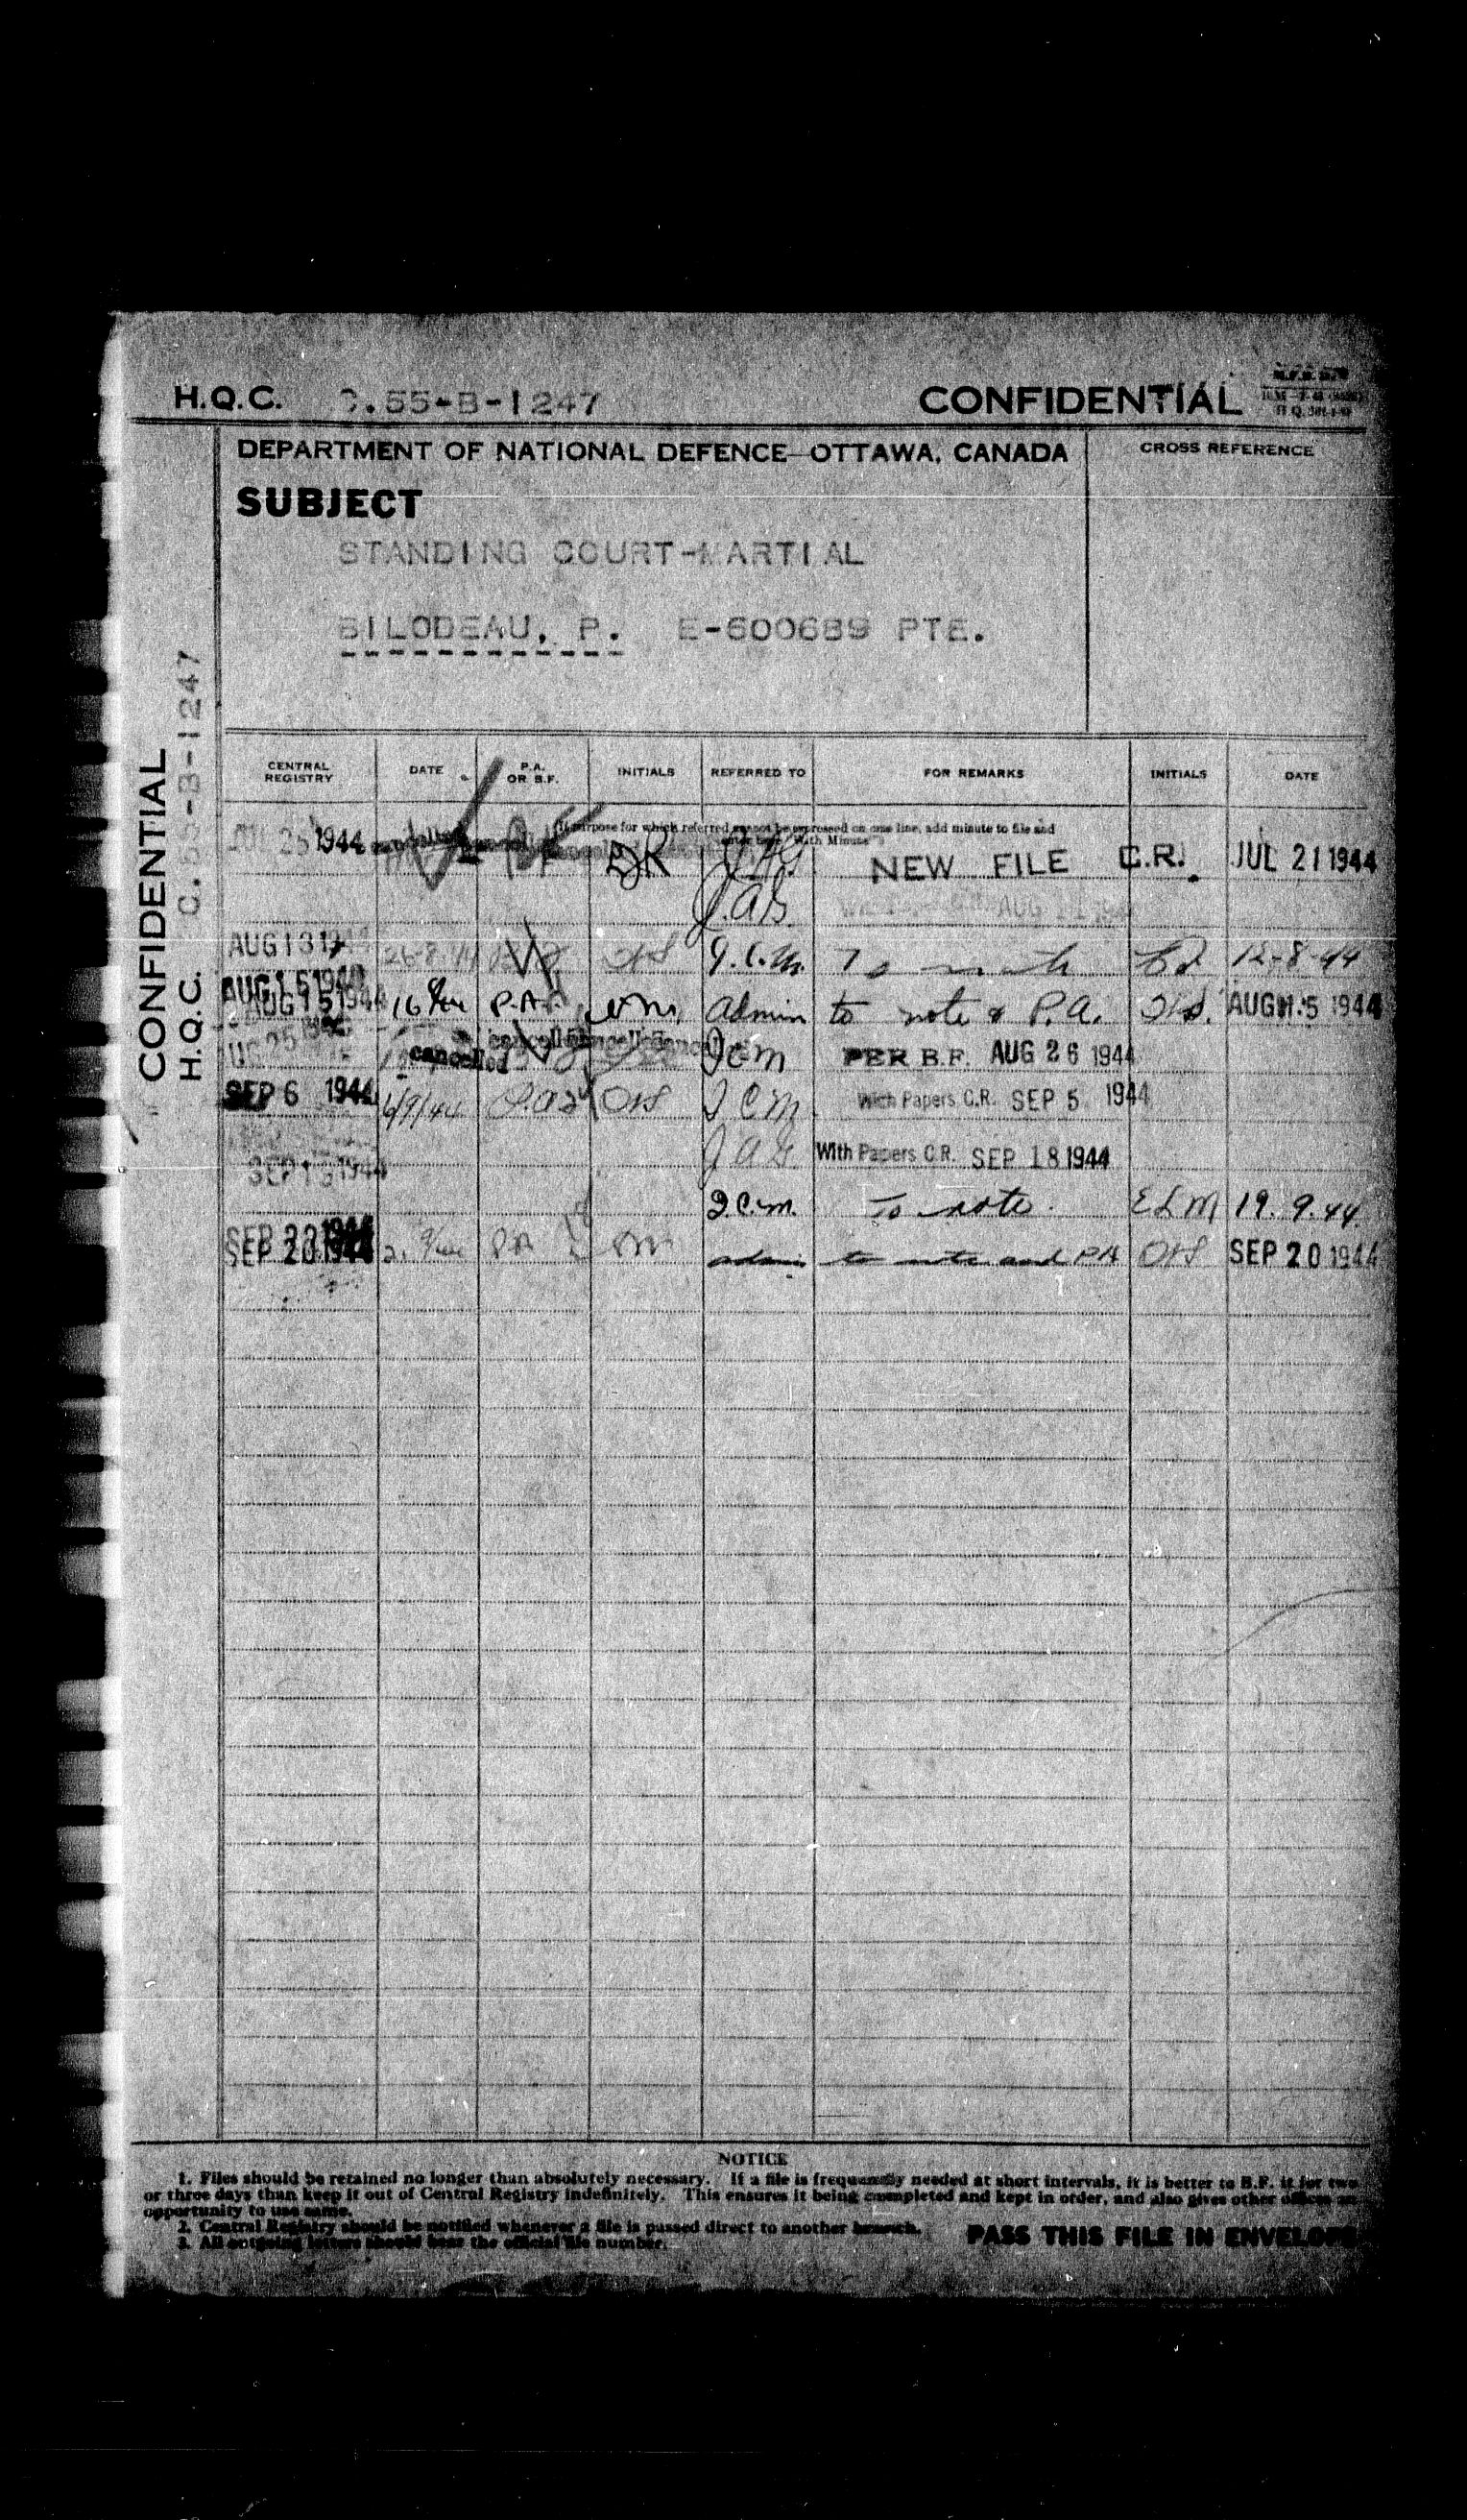 H.Q.C. C.55-B-1247 CONFIDENTIAL
DEPARTMENT OF NATIONAL DEFENCE—OTTAWA, CANADA CROSS REFERENCE
SUBJECT
STANDING COURT-MARTIAL
BILODEAU, P. E-600689 PTE.
CONFIDENTIAL
H.Q.C. C.55-B-1247
CENTRAL REGISTRY DATE P.A. OR B.F. INITIALS REFERRED TO FOR REMARKS INITIALS DATE
(If purpose for which referred cannot be expressed on one line, add minute to file and
enter here "With Minute")
JUL 25 1944 DR J.A.G. NEW FILE C.R. JUL 21 1944
J.A.G. AUG 11 1944
AUG 13 26-8-44 J.C.M. To note 12-8-44
AUG 15 1944
AUG 15 1944 P.A. admin to note & P.A. AUG 15 1944
AUG 25 cancelled cancelled cancelled JCM PER B.F. AUG 26 1944
SEP 6 1944 6/9/44 P.A. OHS JCM With Papers C.R. SEP 5 1944
JAG With Papers C.R. SEP 18 1944
SEP 1944
J.C.M. To note. ELM 19.9.44
SEP 20 1944 PA admin to note and PA OHS SEP 20 1944
NOTICE
1. Files should be retained no longer than absolutely necessary. If a file is frequently needed at short intervals, it is better to B.F. it for two
or three days than keep it out of Central Registry indefinitely. This ensures it being completed and kept in order, and also gives other offices an
opportunity to use same.
2. Central Registry should be notified whenever a file is passed direct to another branch.
3. All outgoing letters should bear the official file number.
PASS THIS FILE IN ENVELOPE